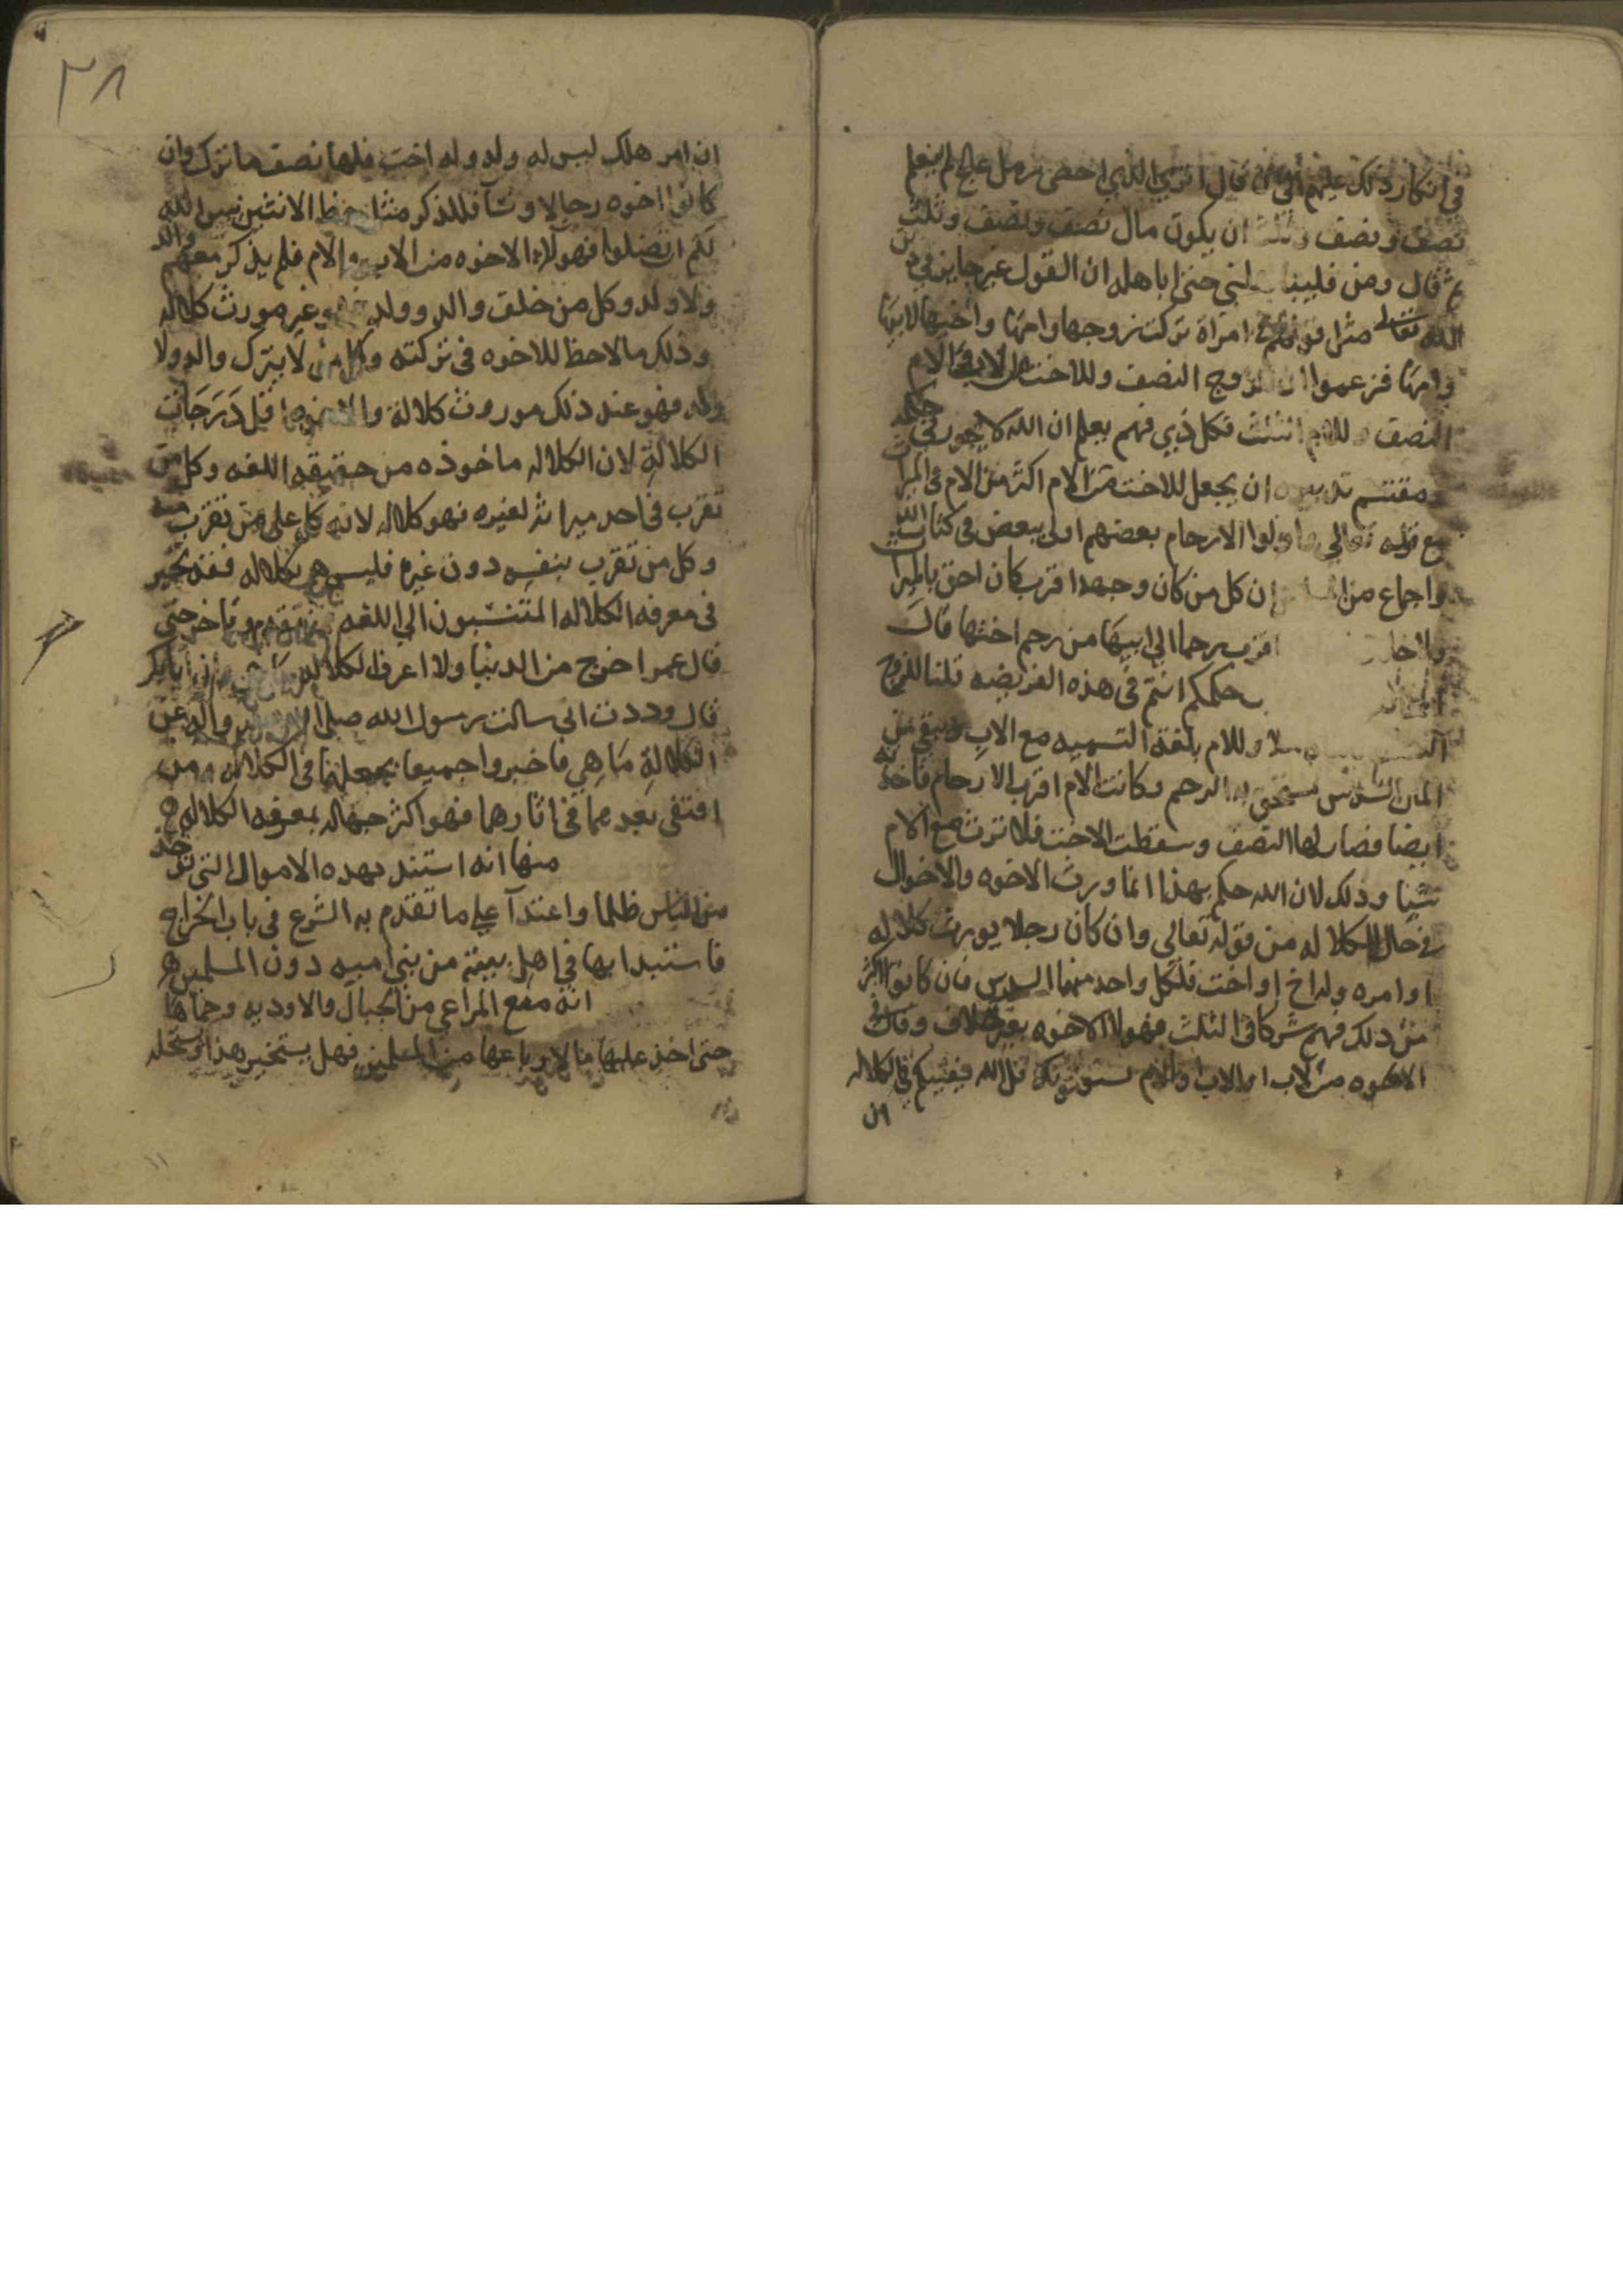 في انكار ذلك عليهم قال اترى الذي احصى رمل عالج لم يعلم
نصف ونصف وثلث ان يكون مال نصف ونصف وثلث
ثم قال ومن حتى اباهله ان القول غير جايز في دين
الله تعالى مثل قولهم في امراة تركت زوجها وامها واختها لابيها
وامها فزعموا ان للزوج النصف وللاخت من الاب والام
النصف وللام الثلث فكل ذي فهم يعلم ان الله لا يجور في حكمه
ان يجعل للاخت من الام اكثر من الام في الميراث
مع قوله تعالى واولوا الارحام بعضهم اولى ببعض في كتاب الله
واجماع من ان كل من كان وجهه اقرب كان احق بالميراث
اقرب رحما الي ابيها من رحم اختها قال
حكمكم انتم في هذه الفريضه قلنا للزوج
وللام بلغة التسميه مع الاب وبقي من
المال السدس يستحق به الرحم وكانت الام اقرب الارحام فاخذته
ايضا فصار لها النصف وسقطت الاخت فلا ترث مع الام
شيا وذلك لان الله حكم بهذا انما ورث الاخوه والاخوال
في حال الكلاله من قوله تعالى وان كان رجلا يورث كلاله
او امره وله اخ او اخت فلكل واحد منهما السدس فان كانوا اكثر
من ذلك فهم شركا في الثلث فهولا الاخوه بغير خلاف وقال في
الاخوه من الاب او الاب والام يستفتونك قل الله يفتيكم في الكلاله
ان
٣٨
ان امر هلك ليس له ولد وله اخت فلها نصف ما ترك وان
كانوا اخوه رجالا ونسآ فللذكر مثل حظ الانثيين يبين الله
لكم ان تضلوا فهولاء الاخوه من الاب والام فلم يذكر معهم والد
ولا ولد وكل من خلف والد وولد فهو غير مورث كلاله
وذلك مالا حظ للاخوه في تركته وكل من لا يترك والد ولا
ولد فهو عند ذلك موروث كلالة والاخوه اقل درجات
الكلالة لان الكلاله ماخوذه من حقيقه اللغه وكل من
تقرب في احد ميراثه لغيره فهو كلاله لانه كل على من تقرب منه
وكل من تقرب بنفسه دون غيره فليس هو بكلاله فقد تحير
في معرفه الكلاله المنتسبون الي اللغه وتاخر حتى
قال عمر اخرج من الدنيا ولا اعرف الكلاله وان ابا بكر
قال وددت اني سالت رسول الله صلى الله عليه واله عن
الكلالة ما هي فاخبروا جميعا بجهلهما في الكلاله ومن
اقتفى بعدهما في اثارهما فهو اكثر جهاله بمعرفه الكلاله
منها انه استبد بهذه الاموال التي توخذ
من الناس ظلما واعتدآ علي ما تقدم به الشرع في باب الخراج
فاستبدا بها في اهل بيته من بني اميه دون المسلمين
انه منع المراعي من الجبال والاوديه وحماها
حتى اخذ عليها مالا وباعها من المسلمين فهل يستخير هذا ويستحله